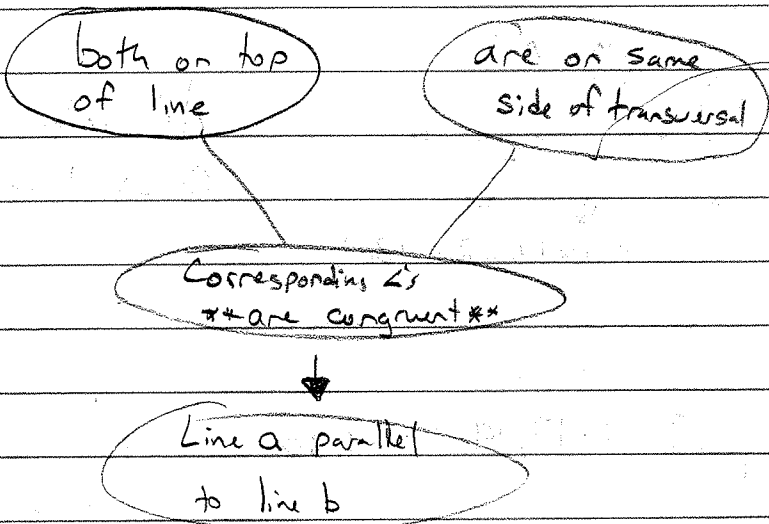 both on top
of line
are on same
side of transversal
Corresponding ∠'s
**are congruent**
Line a parallel
to line b